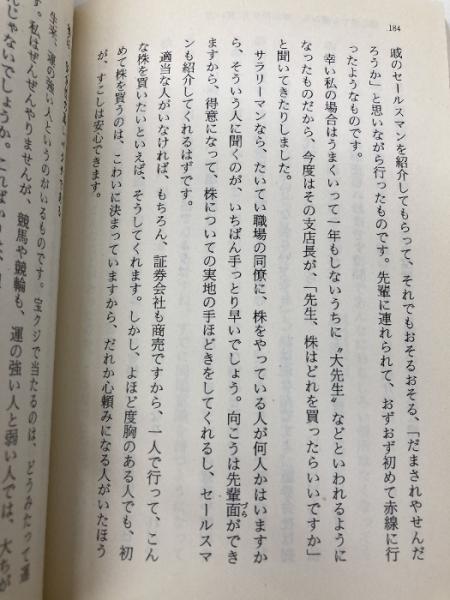 184
戚のセールスマンを紹介してもらって、それでもおそるおそる、「だまされやせんだ
ろうか」と思いながら行ったものです。先輩に連れられて、おずおず初めて赤線に行
ったようなものです。
幸い私の場合はうまくいって一年もしないうちに〝大先生〟などといわれるように
なったものだから、今度はその支店長が、「先生、株はどれを買ったらいいですか」
と聞いてきたりしました。
サラリーマンなら、たいてい職場の同僚に、株をやっている人が何人かはいますか
ら、そういう人に聞くのが、いちばん手っとり早いでしょう。向こうは先輩面ができ
づら
ますから、得意になって、株についての実地の手ほどきをしてくれるし、セールスマ
ンも紹介してくれるはずです。
適当な人がいなければ、もちろん、証券会社も商売ですから、一人で行って、こん
な株を買いたいといえば、そうしてくれます。しかし、よほど度胸のある人でも、初
めて株を買うのは、こわいに決まっていますから、だれか心頼みになる人がいたほう
が、すこしは安心できます。
生来、運の強い人というのがいるものです。宝クジで当たるのは、どうみたって運
です。私はぜんぜんやりませんが、競馬や競輪も、運の強い人と弱い人では、大ちが
んじゃないでしょうか。